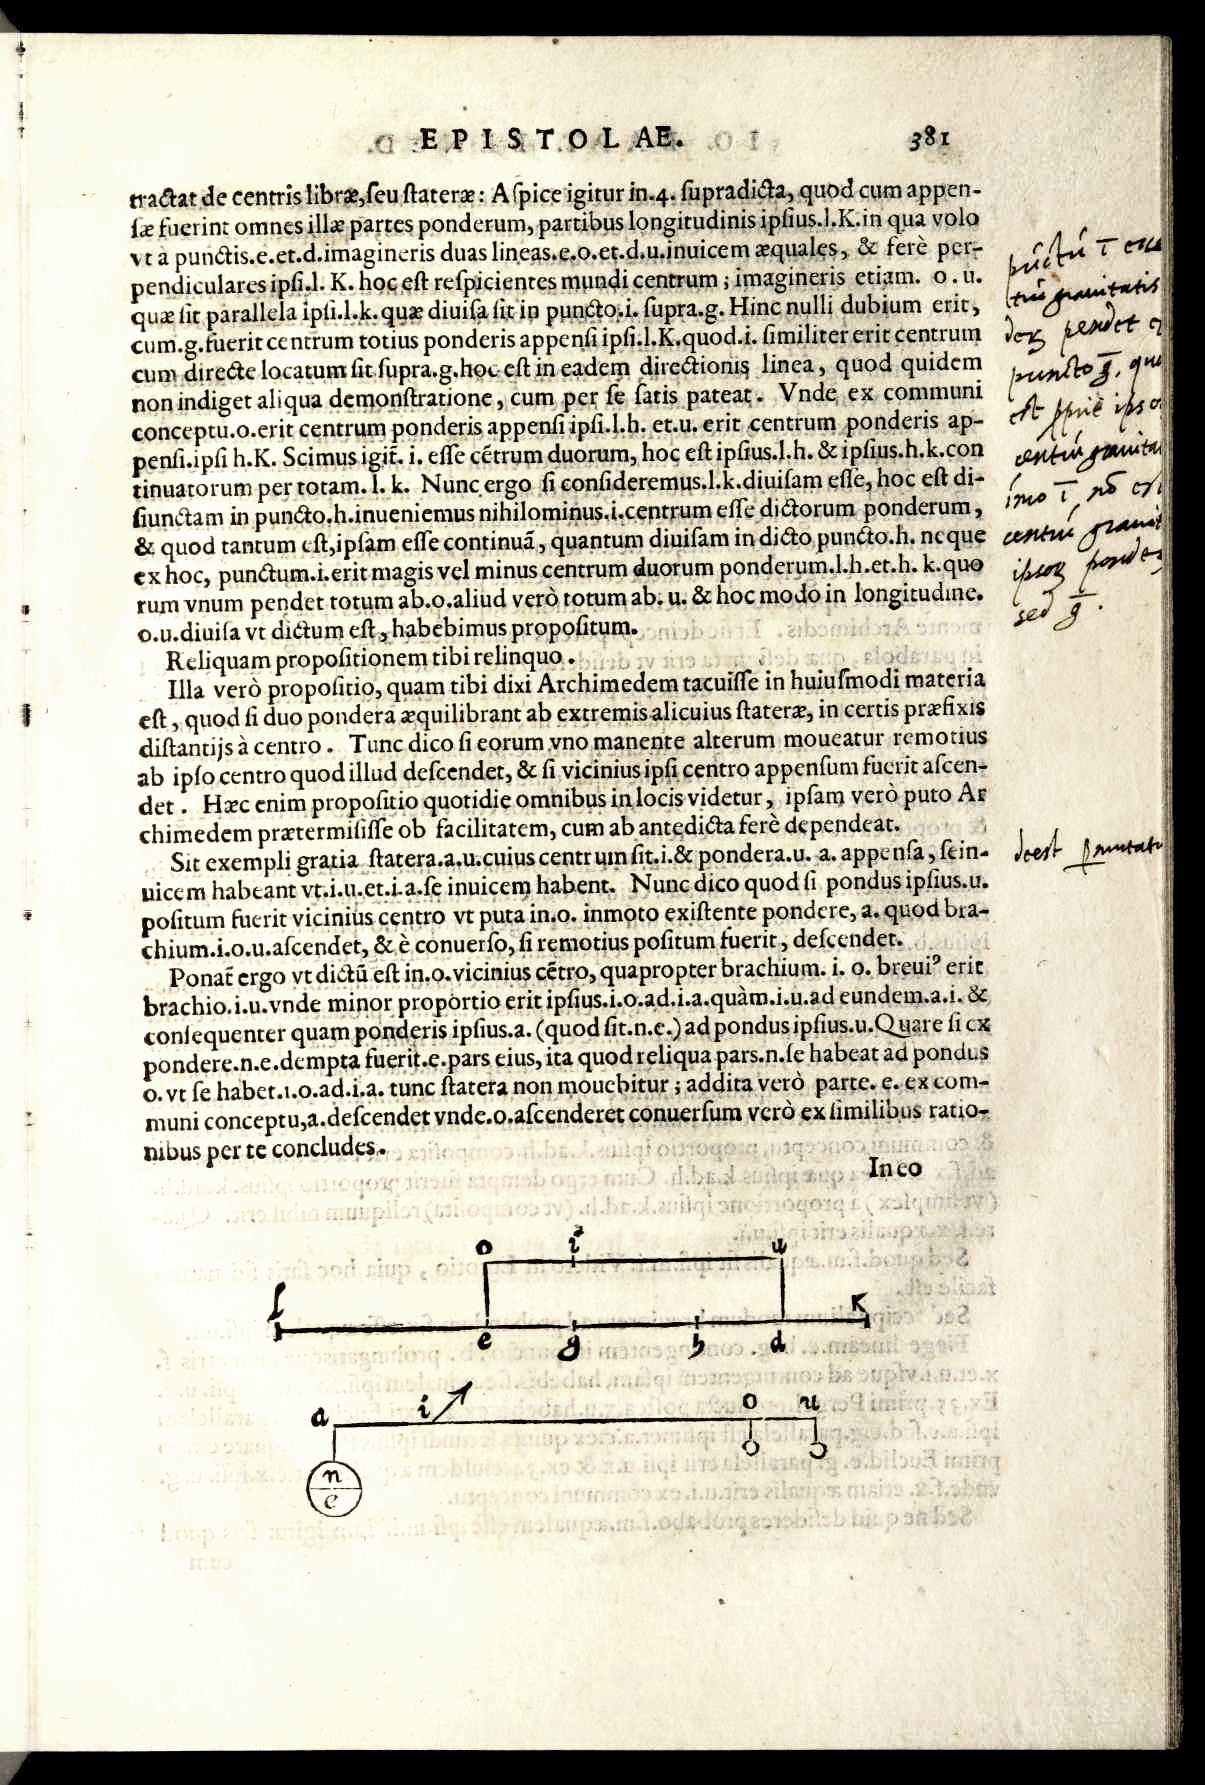 EPISTOLAE. 381
tractat de centris libræ, ſeu ſtateræ: Aſpice igitur in.4. ſupradicta, quod cum appen-
ſæ fuerint omnes illæ partes ponderum, partibus longitudinis ipſius.l.K.in qua volo
vt à punctis.e.et.d.imagineris duas lineas.e.o.et.d.u.inuicem æquales, & ferè per-
pendiculares ipſi.l. K. hoc eſt reſpicientes mundi centrum; imagineris etiam. o.u.
quæ ſit parallela ipſi.l.k.quæ diuiſa ſit in puncto.i. ſupra.g. Hinc nulli dubium erit,
cum.g.fuerit centrum totius ponderis appenſi ipſi.l.K.quod.i. ſimiliter erit centrum
cum directe locatum ſit ſupra.g.hoc eſt in eadem directionis linea, quod quidem
non indiget aliqua demonſtratione, cum per ſe ſatis pateat. Vnde ex communi
conceptu.o.erit centrum ponderis appenſi ipſi.l.h. et.u. erit centrum ponderis ap-
penſi.ipſi h.K. Scimus igit̃. i. eſſe cẽtrum duorum, hoc eſt ipſius.l.h. & ipſius.h.k.con
tinuatorum per totam. l. k. Nunc ergo ſi conſideremus.l.k.diuiſam eſſe, hoc eſt di-
ſiunctam in puncto.h.inueniemus nihilominus.i.centrum eſſe dictorum ponderum,
& quod tantum eſt,ipſam eſſe continuã, quantum diuiſam in dicto puncto.h. neque
ex hoc, punctum.i.erit magis vel minus centrum duorum ponderum.l.h.et.h. k.quo
rum vnum pendet totum ab.o.aliud verò totum ab. u. & hoc modo in longitudine.
o.u.diuiſa vt dictum eſt, habebimus propoſitum.
Reliquam propoſitionem tibi relinquo.
Illa verò propoſitio, quam tibi dixi Archimedem tacuiſſe in huiuſmodi materia
eſt, quod ſi duo pondera æquilibrant ab extremis alicuius ſtateræ, in certis præfixis
diſtantijs à centro. Tunc dico ſi eorum vno manente alterum moueatur remotius
ab ipſo centro quod illud deſcendet, & ſi vicinius ipſi centro appenſum fuerit aſcen-
det. Hæc enim propoſitio quotidie omnibus in locis videtur, ipſam verò puto Ar
chimedem prætermiſiſſe ob facilitatem, cum ab antedicta ferè dependeat.
Sit exempli gratia ſtatera.a.u.cuius centrum ſit.i.& pondera.u. a. appenſa, ſein-
uicem habeant vt.i.u.et.i.a.ſe inuicem habent. Nunc dico quod ſi pondus ipſius.u.
poſitum fuerit vicinius centro vt puta in.o. inmoto exiſtente pondere, a. quod bra-
chium.i.o.u.aſcendet, & è conuerſo, ſi remotius poſitum fuerit, deſcendet.
Ponat̃ ergo vt dictũ eſt in.o.vicinius cẽtro, quapropter brachium. i. o. breui⁹ erit
brachio.i.u.vnde minor proportio erit ipſius.i.o.ad.i.a.quàm.i.u.ad eundem.a.i. &
conſequenter quam ponderis ipſius.a.(quod ſit.n.e.)ad pondus ipſius.u.Quare ſi ex
pondere.n.e.dempta fuerit.e.pars eius, ita quod reliqua pars.n.ſe habeat ad pondus
o.vt ſe habet.i.o.ad.i.a. tunc ſtatera non mouebitur; addita verò parte. e. ex com-
muni conceptu,a.deſcendet vnde.o.aſcenderet conuerſum verò ex ſimilibus ratio-
nibus per te concludes.
In eo
o i u
l K
e g h d
a i o u
n
e
pũctũ ī
grauitatis
pendet
puncto g̅.
est ipso
centrũ
nõ
centrũ
sed g̅.
deest